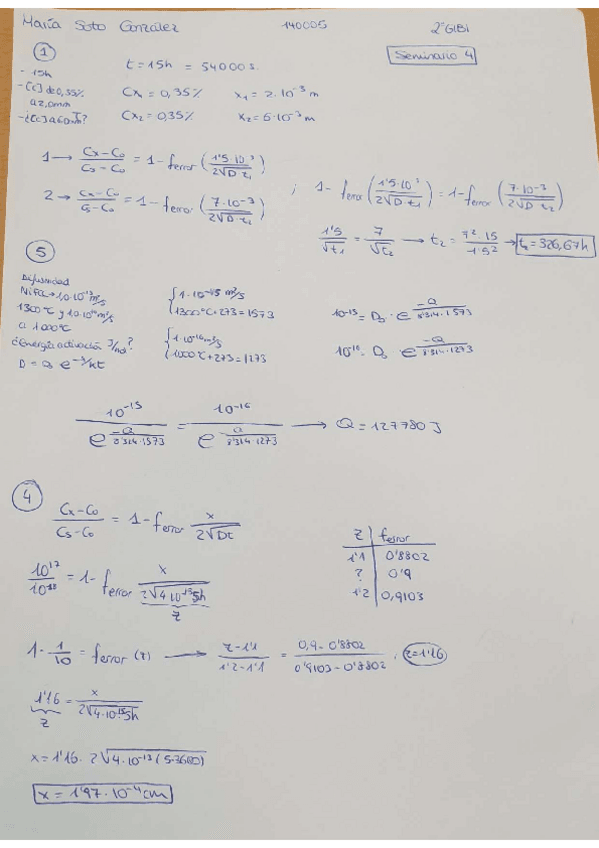 María Soto González 140005 2ºGIBI
Seminario 4
①
- 15h
- [C] de 0,35%
a 2,0mm
- ¿t [C] a 6,0mm?
t = 15h = 54000 s.
Cx₁ = 0,35% x₁ = 2·10⁻³ m
Cx₂ = 0,35% x₂ = 6·10⁻³ m
1 → Cx-C₀ / Cs-C₀ = 1 - ferror (1'5·10⁻³ / 2√D t₁)
2 → Cx-C₀ / Cs-C₀ = 1 - ferror (7·10⁻³ / 2√D t₂)
; 1 - ferror (1'5·10⁻³ / 2√D t₁) = 1 - ferror (7·10⁻³ / 2√D t₂)
1'5 / √t₁ = 7 / √t₂ → t₂ = 7²·15 / 1'5² → t₂ = 326,67h
⑤
Difusividad
1300ºC y 10·10⁻¹⁶ m²/s
a 1000ºC
¿Energía activación J/mol?
{ 1·10⁻¹⁵ m²/s
1300ºC+273 = 1573
{ 1·10⁻¹⁶ m²/s
1000ºC+273 = 1273
10⁻¹⁵ = D₀ · e^(-Q / 8'314·1573)
10⁻¹⁶ = D₀ e^(-Q / 8'314·1273)
10⁻¹⁵ / e^(-Q / 8'314·1573) = 10⁻¹⁶ / e^(-Q / 8'314·1273) → Q = 127780 J
④
Cx-C₀ / Cs-C₀ = 1 - ferror x / 2√Dt
10¹⁷ / 10¹⁸ = 1 - ferror x / 2√4·10⁻¹³·5h
z
z | ferror
1'1 | 0'8802
? | 0'9
1'2 | 0,9103
1 - 1/10 = ferror (z) → z-1'1 / 1'2-1'1 = 0,9-0'8802 / 0'9103-0'8802 . z=1'16
1'16 = x / 2√4·10⁻¹³·5h
z
x = 1'16 · 2√4·10⁻¹³ (5·3600)
x = 1'97·10⁻⁴ cm